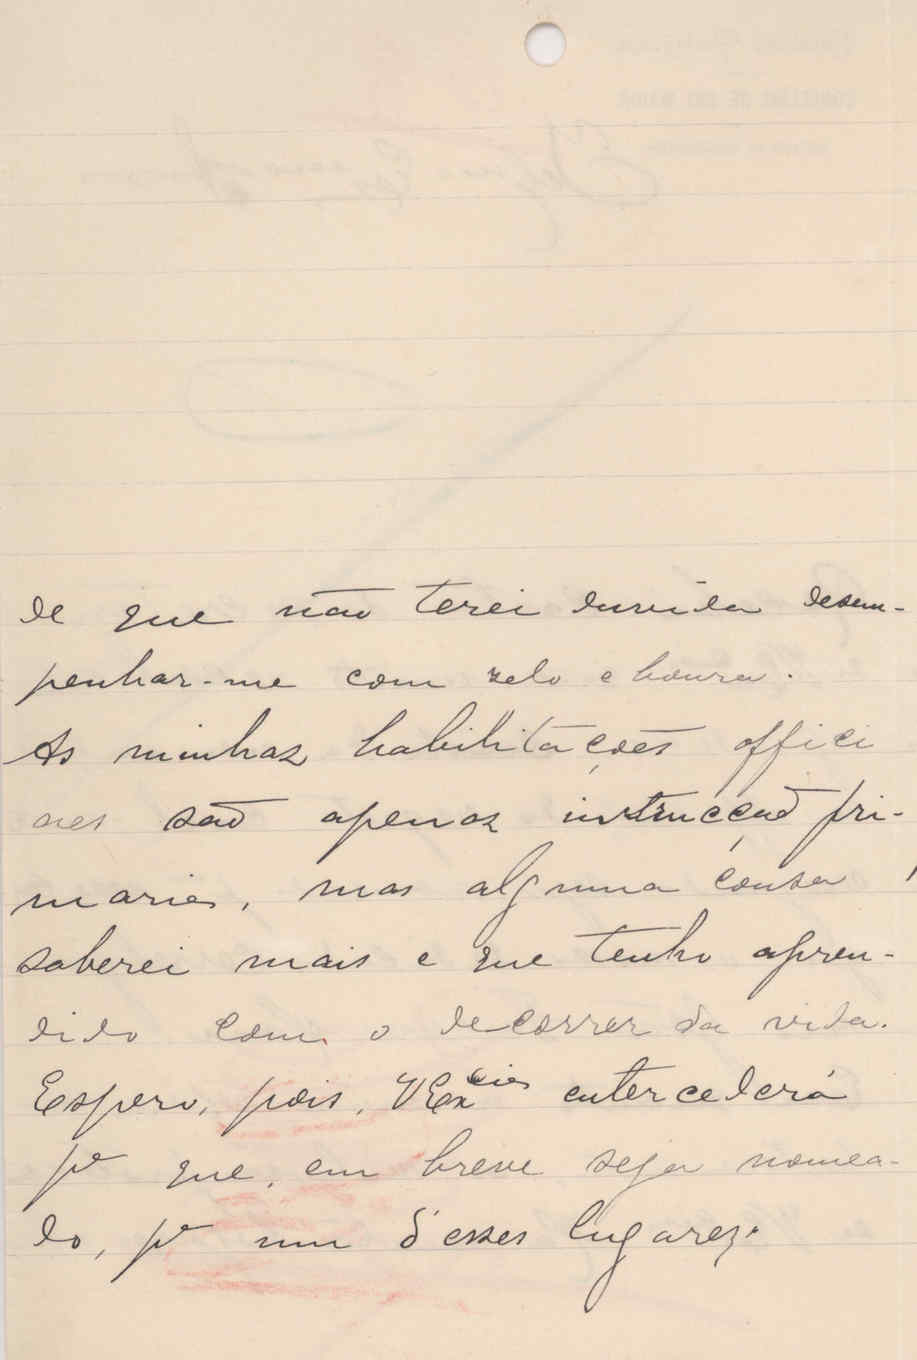 de que não terei duvida desem-
penhar-me com zelo e honra.
As minhas habilitações offici
aes são apenas instrucção pri-
maria, mas alguma cousa
saberei mais e que tenho apren-
dido com o decorrer da vida.
Espero, pois, VEx.cia entercederá
pª que, em breve seja nomea-
do, pª um d'esses lugares.